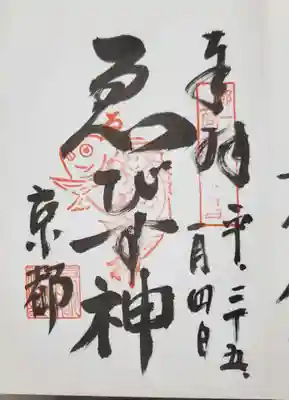 奉拝
平、三十五、
一月四日
ゑびす神
京都